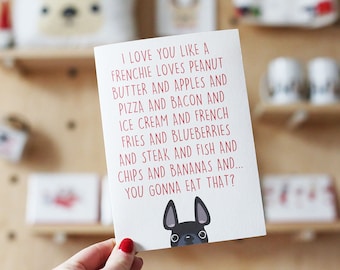 I LOVE YOU LIKE A
FRENCHIE LOVES PEANUT
BUTTER AND APPLES AND
PIZZA AND BACON AND
ICE CREAM AND FRENCH
FRIES AND BLUEBERRIES
AND STEAK AND FISH AND
CHIPS AND BANANAS AND...
YOU GONNA EAT THAT?